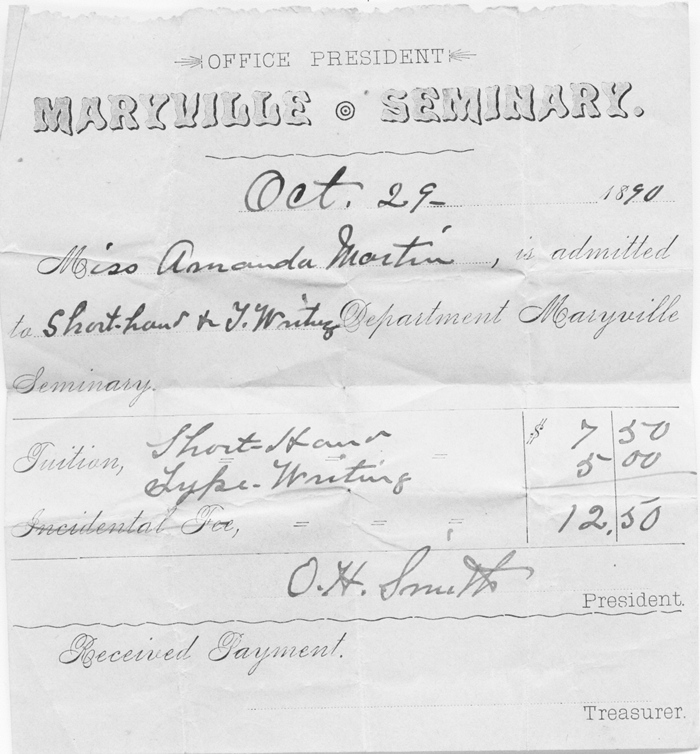 OFFICE PRESIDENT
MARYVILLE SEMINARY.
Oct. 29 1890
Miss Amanda Martin, is admitted
to Short-hand & T. Writing Department Maryville
Seminary.
Tuition, Short-Hand $ 7 50
Type-Writing 5 00
Incidental Fee, 12.50
O. H. Smith
President.
Received Payment.
Treasurer.